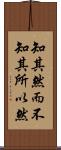 知其然而不
知其所以然